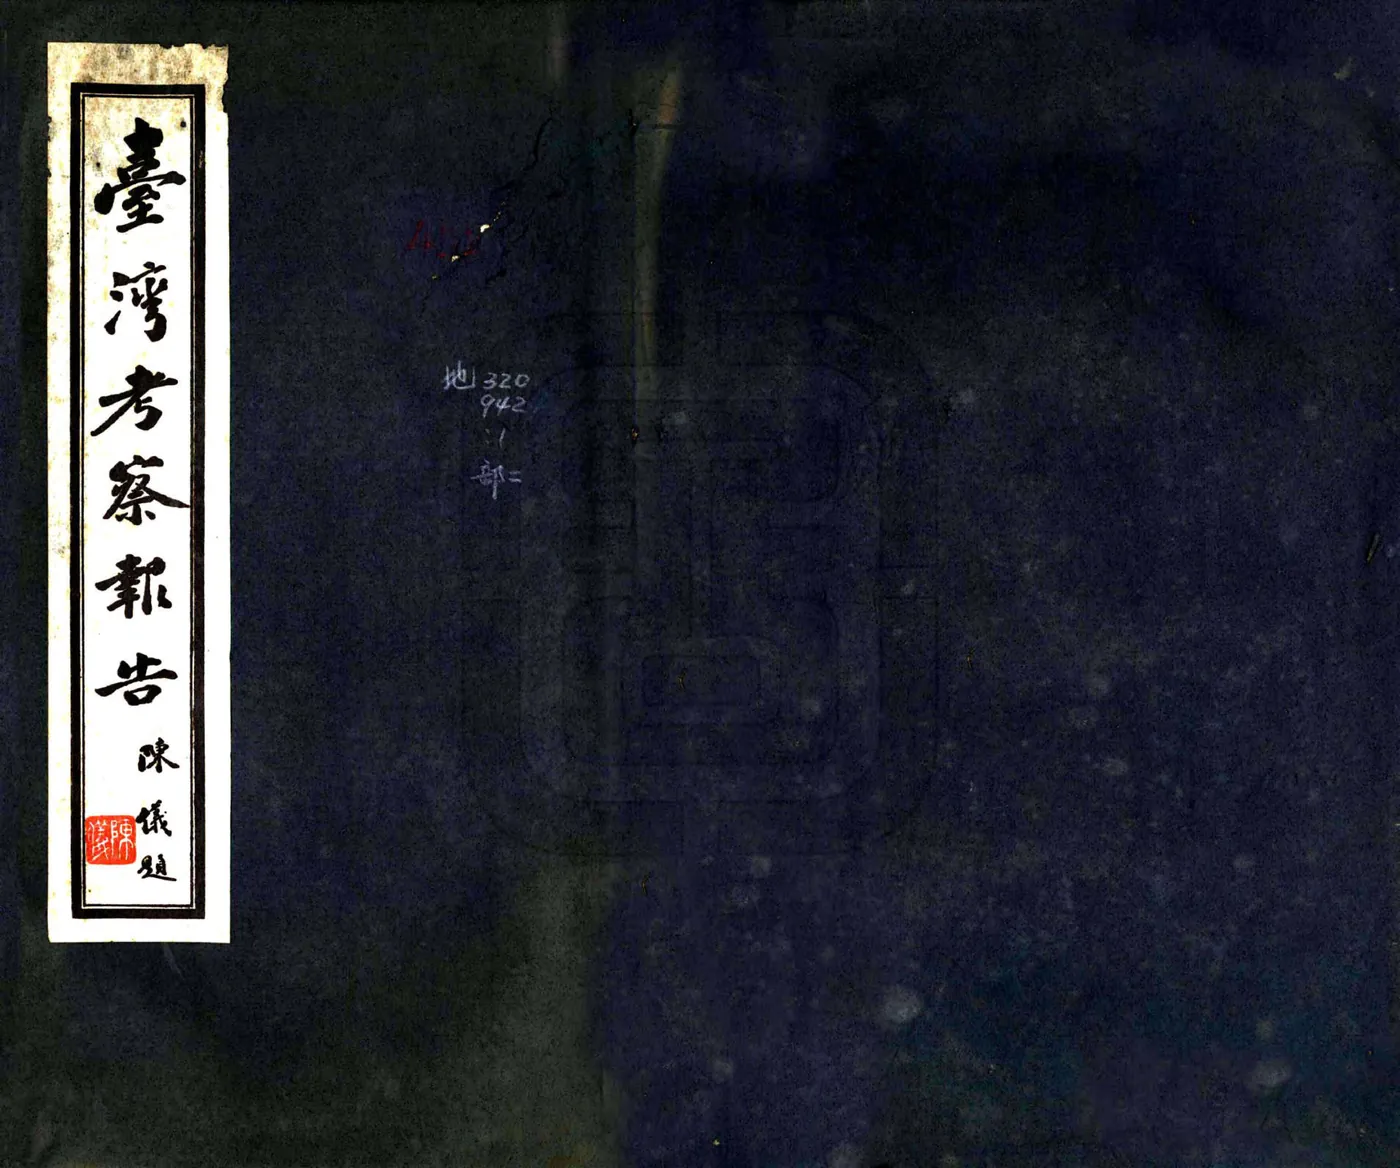 臺灣考察報告
陳儀題
陳儀
地320
942
:1
部二